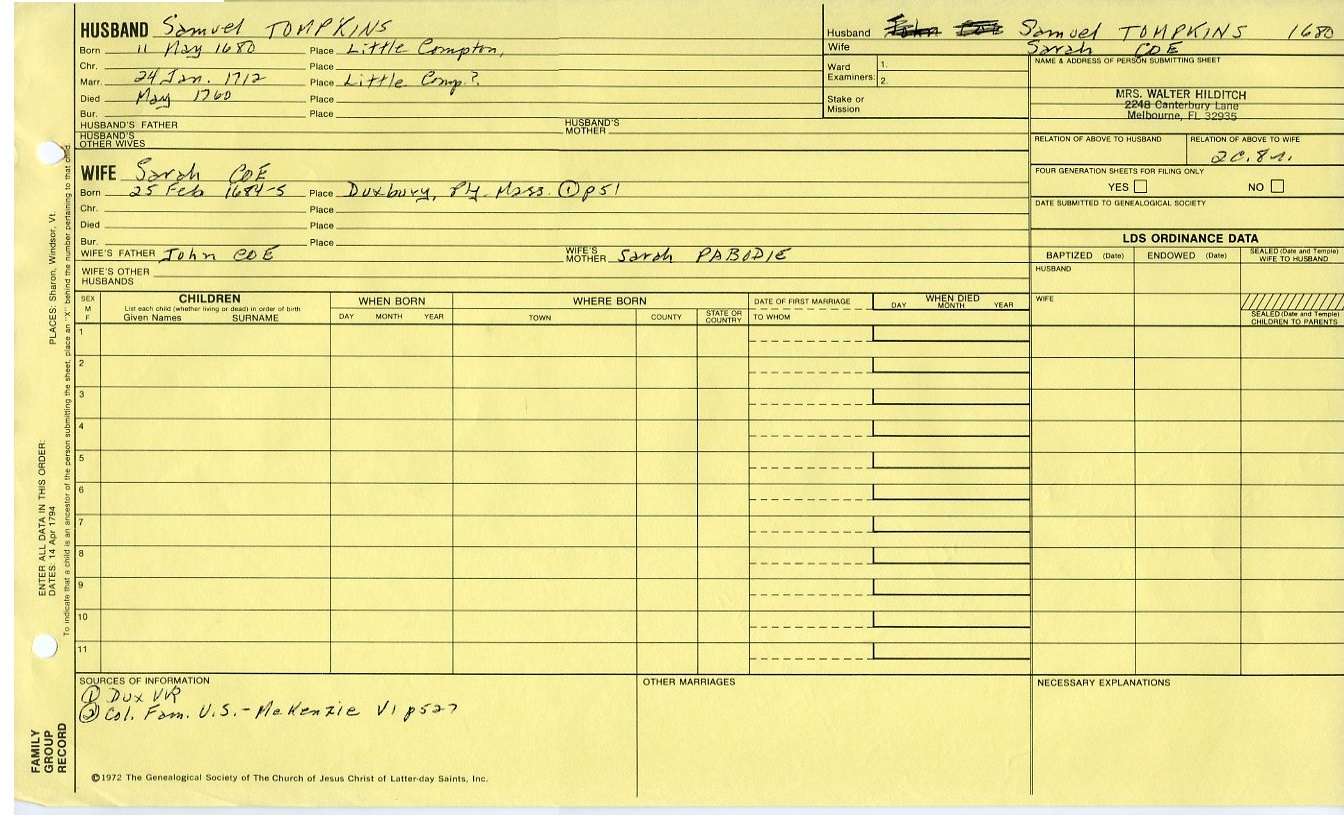 HUSBAND Samuel TOMPKINS
Born 11 May 1680 Place Little Compton,
Chr. Place
Marr. 24 Jan. 1712 Place Little Comp.?
Died May 1760 Place
Bur. Place
HUSBAND'S FATHER HUSBAND'S MOTHER
HUSBAND'S OTHER WIVES
WIFE Sarah COE
Born 25 Feb 1684-5 Place Duxbury, Ply. Mass. ① p51
Chr. Place
Died Place
Bur. Place
WIFE'S FATHER John COE WIFE'S MOTHER Sarah PABODIE
WIFE'S OTHER HUSBANDS
Husband Samuel TOMPKINS 1680
Wife Sarah COE
Ward Examiners: 1.
2.
Stake or Mission
NAME & ADDRESS OF PERSON SUBMITTING SHEET
MRS. WALTER HILDITCH
2248 Canterbury Lane
Melbourne, FL 32935
RELATION OF ABOVE TO HUSBAND RELATION OF ABOVE TO WIFE
2C.8r.
FOUR GENERATION SHEETS FOR FILING ONLY
YES NO
DATE SUBMITTED TO GENEALOGICAL SOCIETY
LDS ORDINANCE DATA
BAPTIZED (Date) ENDOWED (Date) SEALED (Date and Temple) WIFE TO HUSBAND
HUSBAND
WIFE
SEALED (Date and Temple) CHILDREN TO PARENTS
SEX M F CHILDREN WHEN BORN WHERE BORN DATE OF FIRST MARRIAGE WHEN DIED
List each child (whether living or dead) in order of birth DAY MONTH YEAR
Given Names SURNAME DAY MONTH YEAR TOWN COUNTY STATE OR COUNTRY TO WHOM
1
2
3
4
5
6
7
8
9
10
11
SOURCES OF INFORMATION OTHER MARRIAGES NECESSARY EXPLANATIONS
① Dux VR
② Col. Fam. U.S. - McKenzie V1 p527
©1972 The Genealogical Society of The Church of Jesus Christ of Latter-day Saints, Inc.
FAMILY GROUP RECORD
ENTER ALL DATA IN THIS ORDER:
DATES: 14 Apr 1794 PLACES: Sharon, Windsor, Vt.
To indicate that a child is an ancestor of the person submitting the sheet, place an "X" behind the number pertaining to that child.